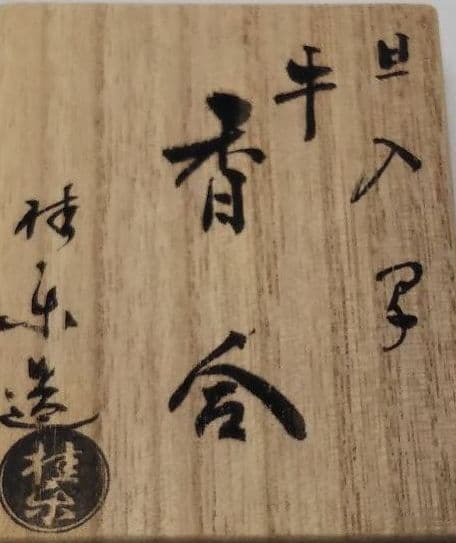 旦入写
牛
香合
桂楽造
桂楽